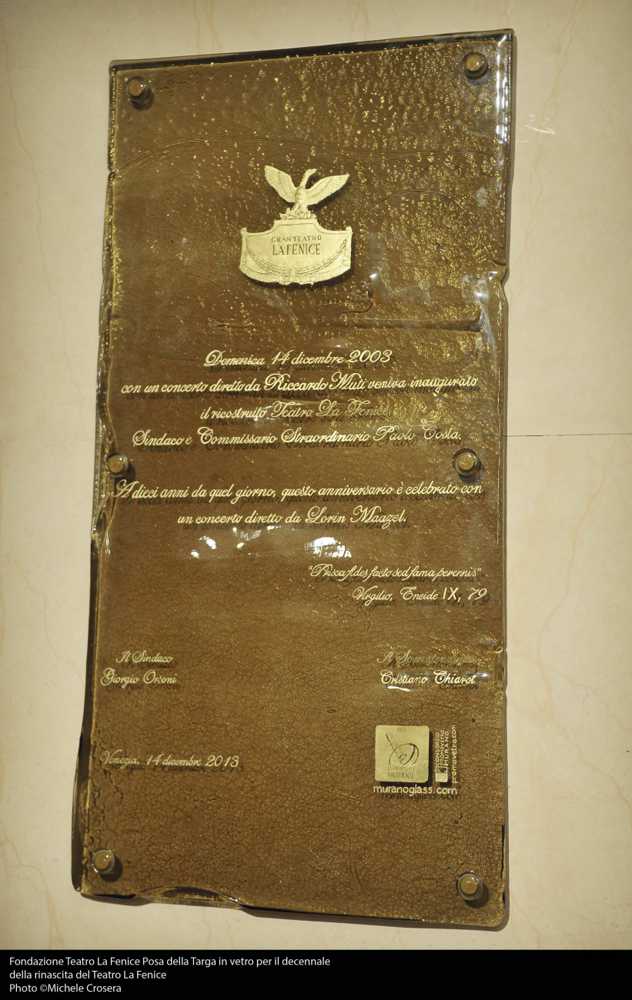 GRAN TEATRO
LA FENICE
Domenica 14 dicembre 2003
con un concerto diretto da Riccardo Muti veniva inaugurato
il ricostruito Teatro La Fenice
Sindaco e Commissario Straordinario Paolo Costa.
A dieci anni da quel giorno, questo anniversario è celebrato con
un concerto diretto da Lorin Maazel.
"Prisca fides facto sed fama perennis"
Virgilio, Eneide IX, 79
Il Sindaco
Giorgio Orsoni
Il Sovrintendente
Cristiano Chiarot
Venezia, 14 dicembre 2013
CONSORZIO
PROMOVETRO
MURANO
promovetro.com
muranoglass.com
Fondazione Teatro La Fenice Posa della Targa in vetro per il decennale
della rinascita del Teatro La Fenice
Photo ©Michele Crosera